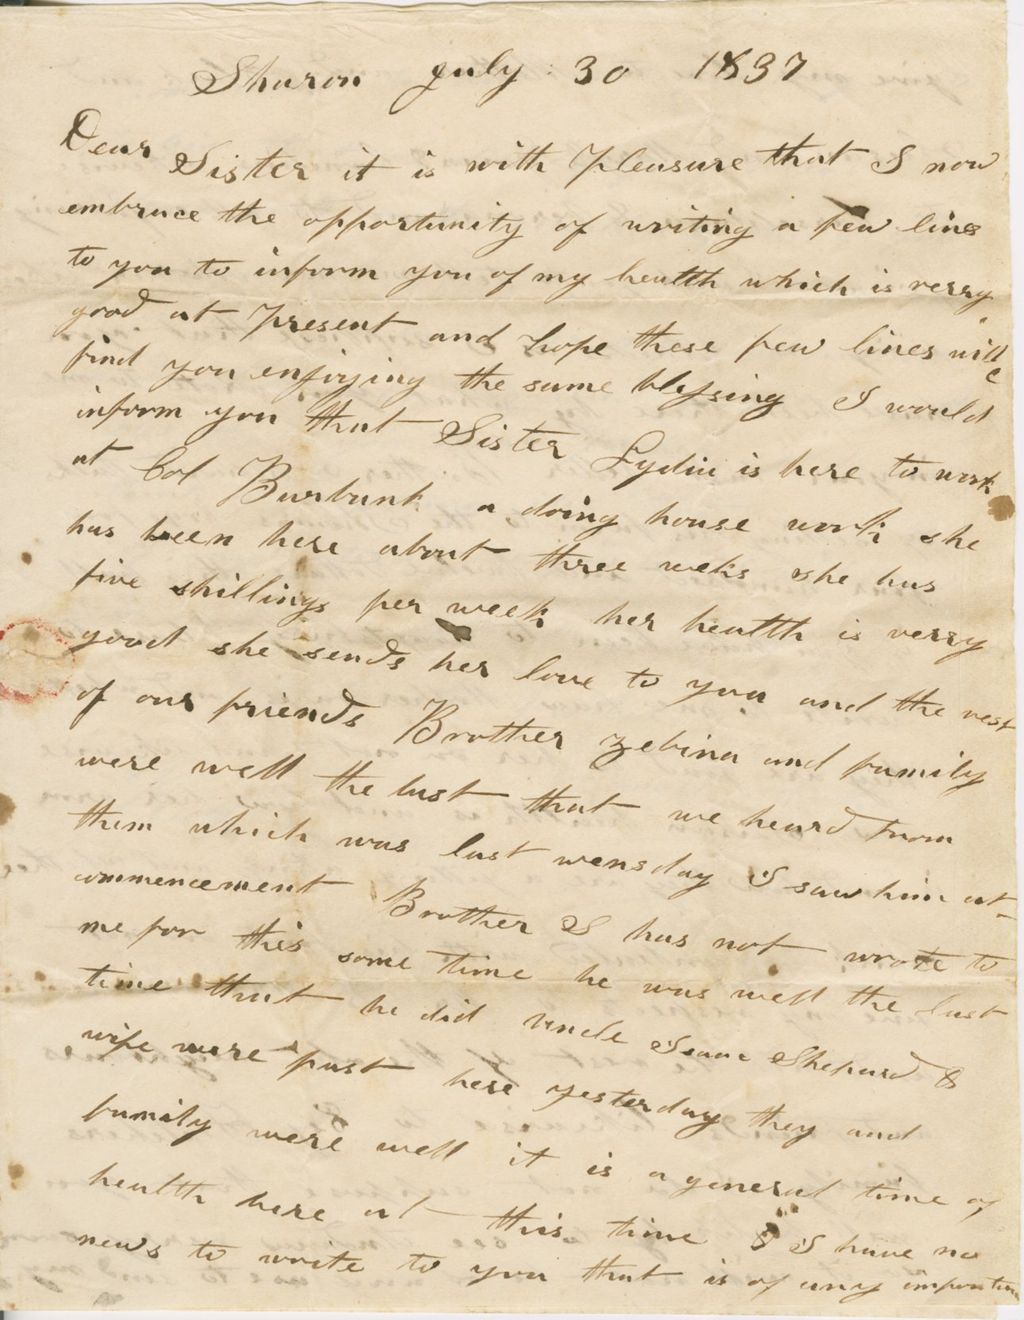 Sharon July 30 1837
Dear Sister it is with Pleasure that I now
embrace the opportunity of writing a few lines
to you to inform you of my health which is verry
good at Present and hope these few lines will
find you enjoying the same blessing I would
inform you that Sister Lydia is here to work
at Col Burbank a doing house work she
has been here about three weeks she has
five shillings per week her health is verry
good she sends her love to you and the rest
of our friends Brother Zebina and family
were well the last that we heard from
them which was last wensday I saw him at
commencement Brother S has not wrote to
me for this some time he was well the last
time that he did Uncle Isaac Shepard &
wife were past here yesterday they and
family were well it is a general time of
health here at this time I have no
news to write to you that is of any